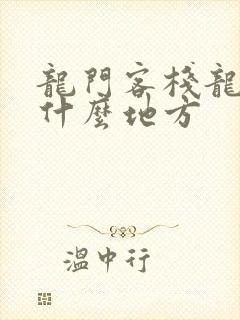 龍門客棧龍
什麼地方
溫中行